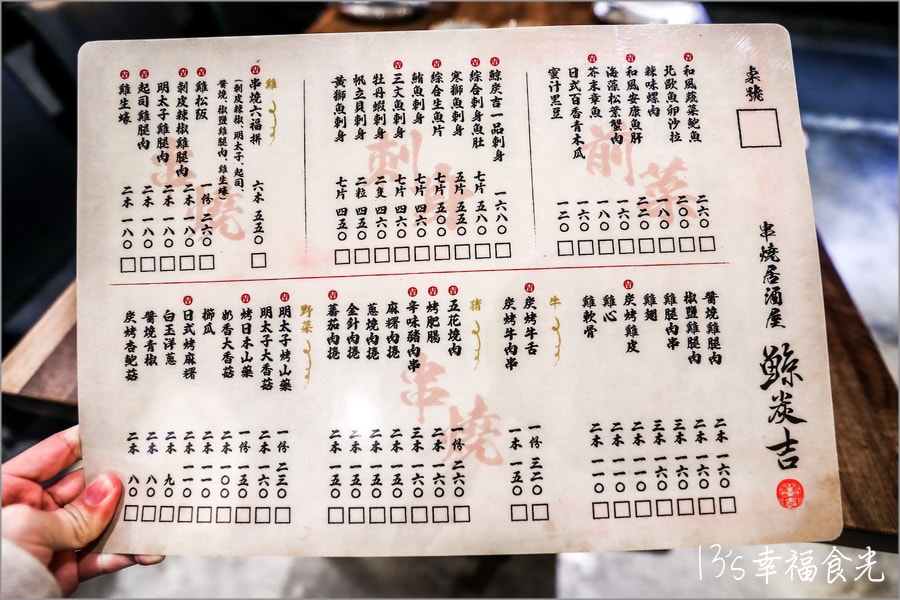 桌號
串燒居酒屋 鯨炭吉
前菜
吉 和風蔬菜鮑魚 二六〇
北歐魚卵沙拉 二〇〇
辣味螺肉 一八〇
吉 和風安康魚肝 二二〇
海藻松葉蟹肉 一八〇
吉 芥末章魚 一六〇
日式百香青木瓜 一〇〇
蜜汁黑豆 一二〇
刺身
吉 鯨炭吉一品刺身 一六八〇
吉 綜合刺身魚肚 七片 五八〇
寒獅魚刺身 五片 五五〇
吉 綜合生魚片 七片 五〇〇
鮪魚刺身 七片 四六〇
吉 三文魚刺身 七片 四六〇
牡丹蝦刺身 二隻 四六〇
帆立貝刺身 二粒 四五〇
黃獅魚刺身 七片 四五〇
串燒
雞
吉 串燒六福拼 六本 五五〇
(剝皮辣椒、明太子、起司、
醬燒、椒鹽雞腿肉、雞生蠔)
吉 雞松阪 一份 二六〇
吉 剝皮辣椒雞腿肉 二本 一八〇
明太子雞腿肉 二本 一八〇
吉 起司雞腿肉 二本 一八〇
吉 雞生蠔 二本 一八〇
醬燒雞腿肉 二本 一六〇
椒鹽雞腿肉 二本 一六〇
雞腿肉串 二本 一六〇
雞翅 三本 一六〇
吉 炭烤雞皮 三本 一六〇
雞心 二本 一一〇
雞軟骨 二本 一一〇
串燒
牛
吉 炭烤牛舌 一份 三二〇
炭烤牛肉串 一本 一五〇
豬
吉 五花燒肉 一份 二六〇
吉 烤肥腸 二本 一六〇
吉 辛味豬肉串 三本 一六〇
麻糬肉捲 二本 一五〇
蔥燒肉捲 二本 一五〇
金針肉捲 二本 一五〇
吉 蕃茄肉捲 二本 一五〇
野菜
吉 明太子烤山藥 一份 二三〇
明太子大香菇 二本 一六〇
吉 烤日本山藥 一份 一五〇
奶香大香菇 二本 一二〇
櫛瓜 二本 一一〇
吉 日式烤麻糬 二本 一一〇
白玉洋蔥 二本 九〇
醬燒青椒 二本 八〇
炭烤杏鮑菇 二本 八〇
13's幸福食光